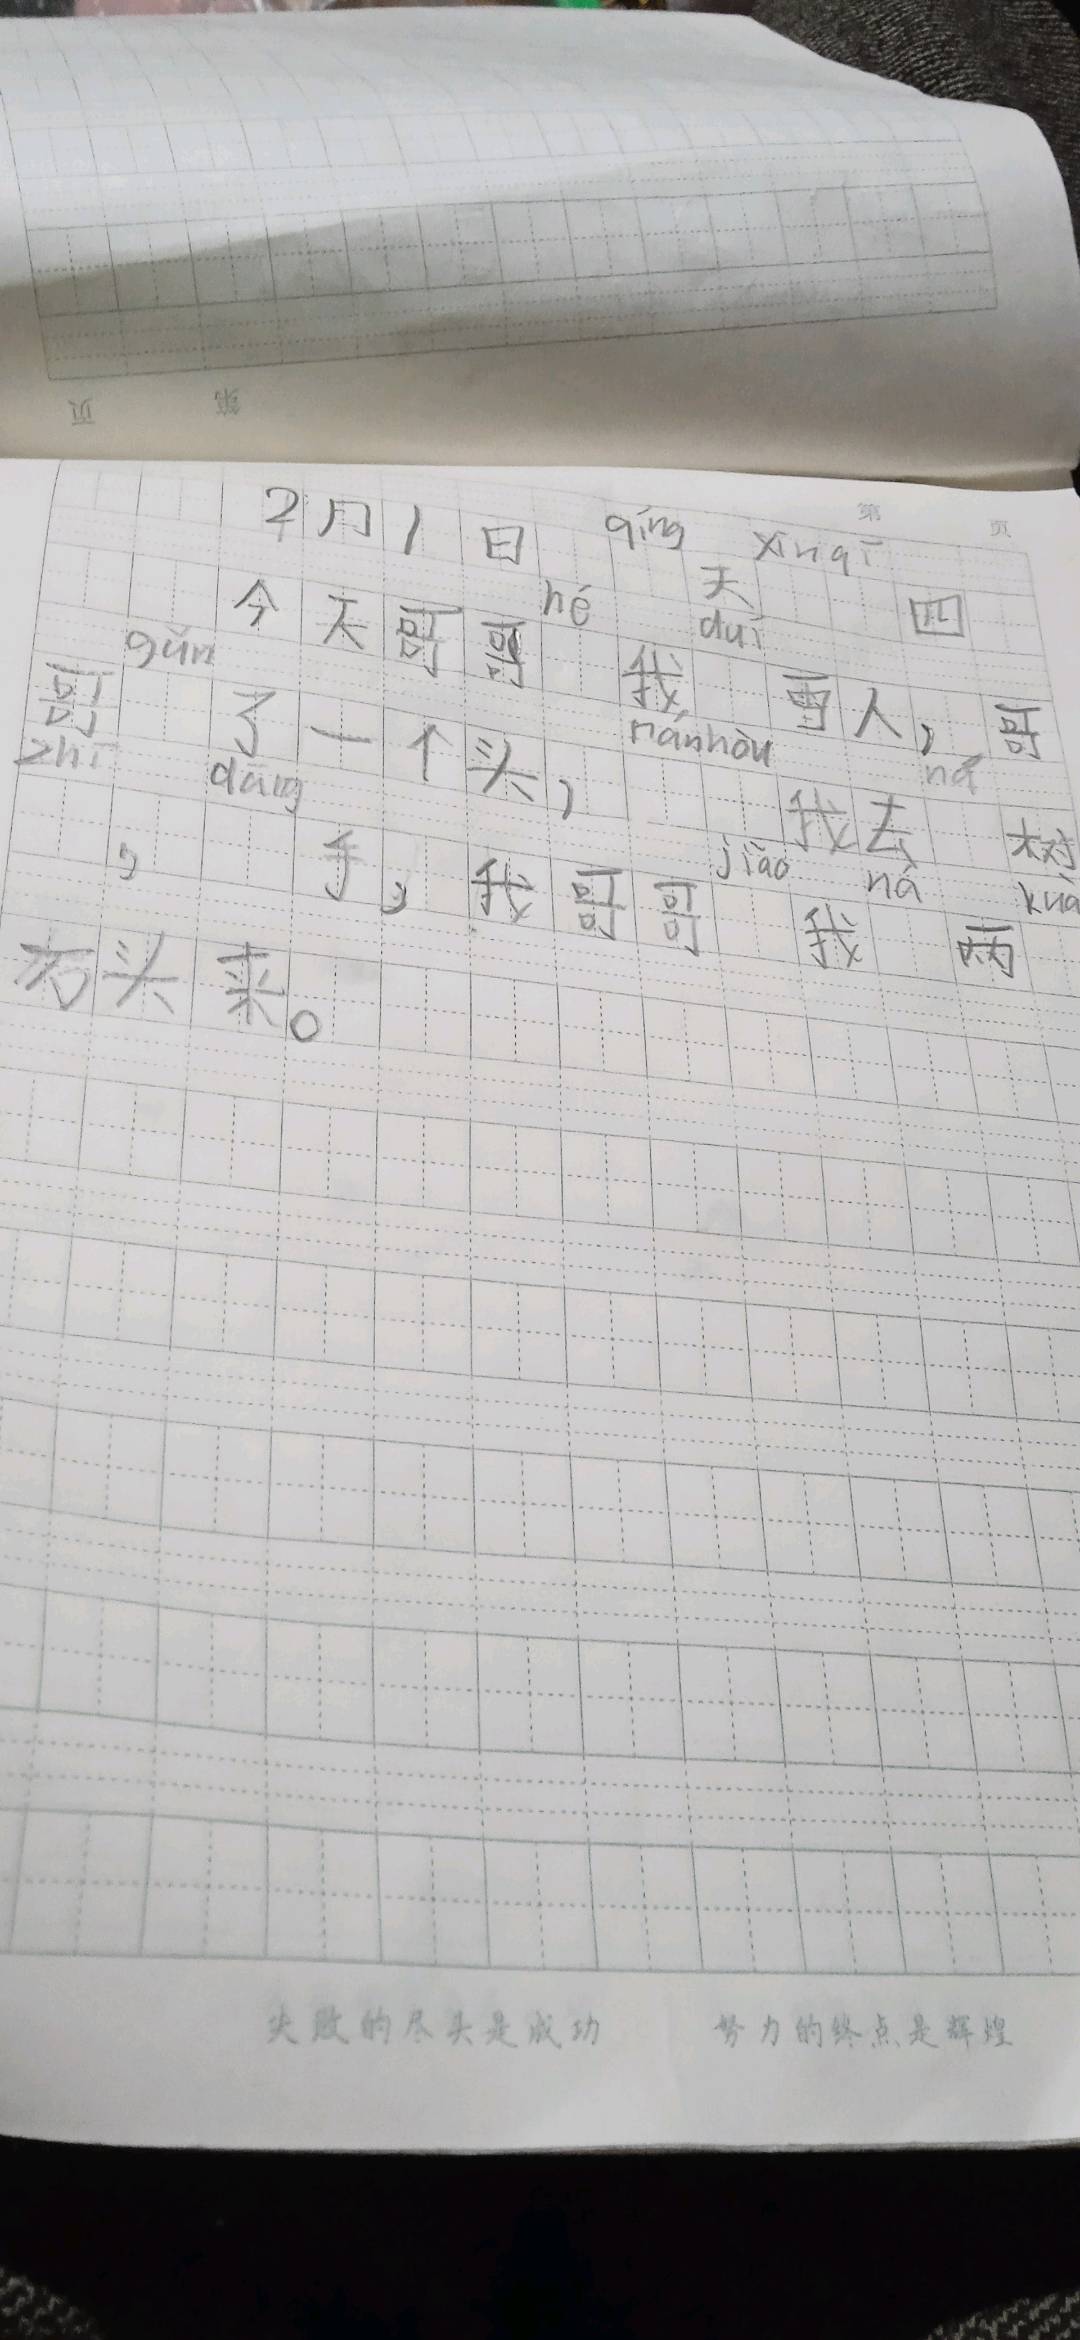 页 第
第 页
2月1日 qíng 天 xīnqī 四
今天哥哥 hé 我 duī 雪人,哥
哥 gǔn 了一个头, ránhòu 我去 ná 树
zhī , dāng 手,我哥哥 jiào 我 ná 两 kuà
石头来。
失败的尽头是成功 努力的终点是辉煌